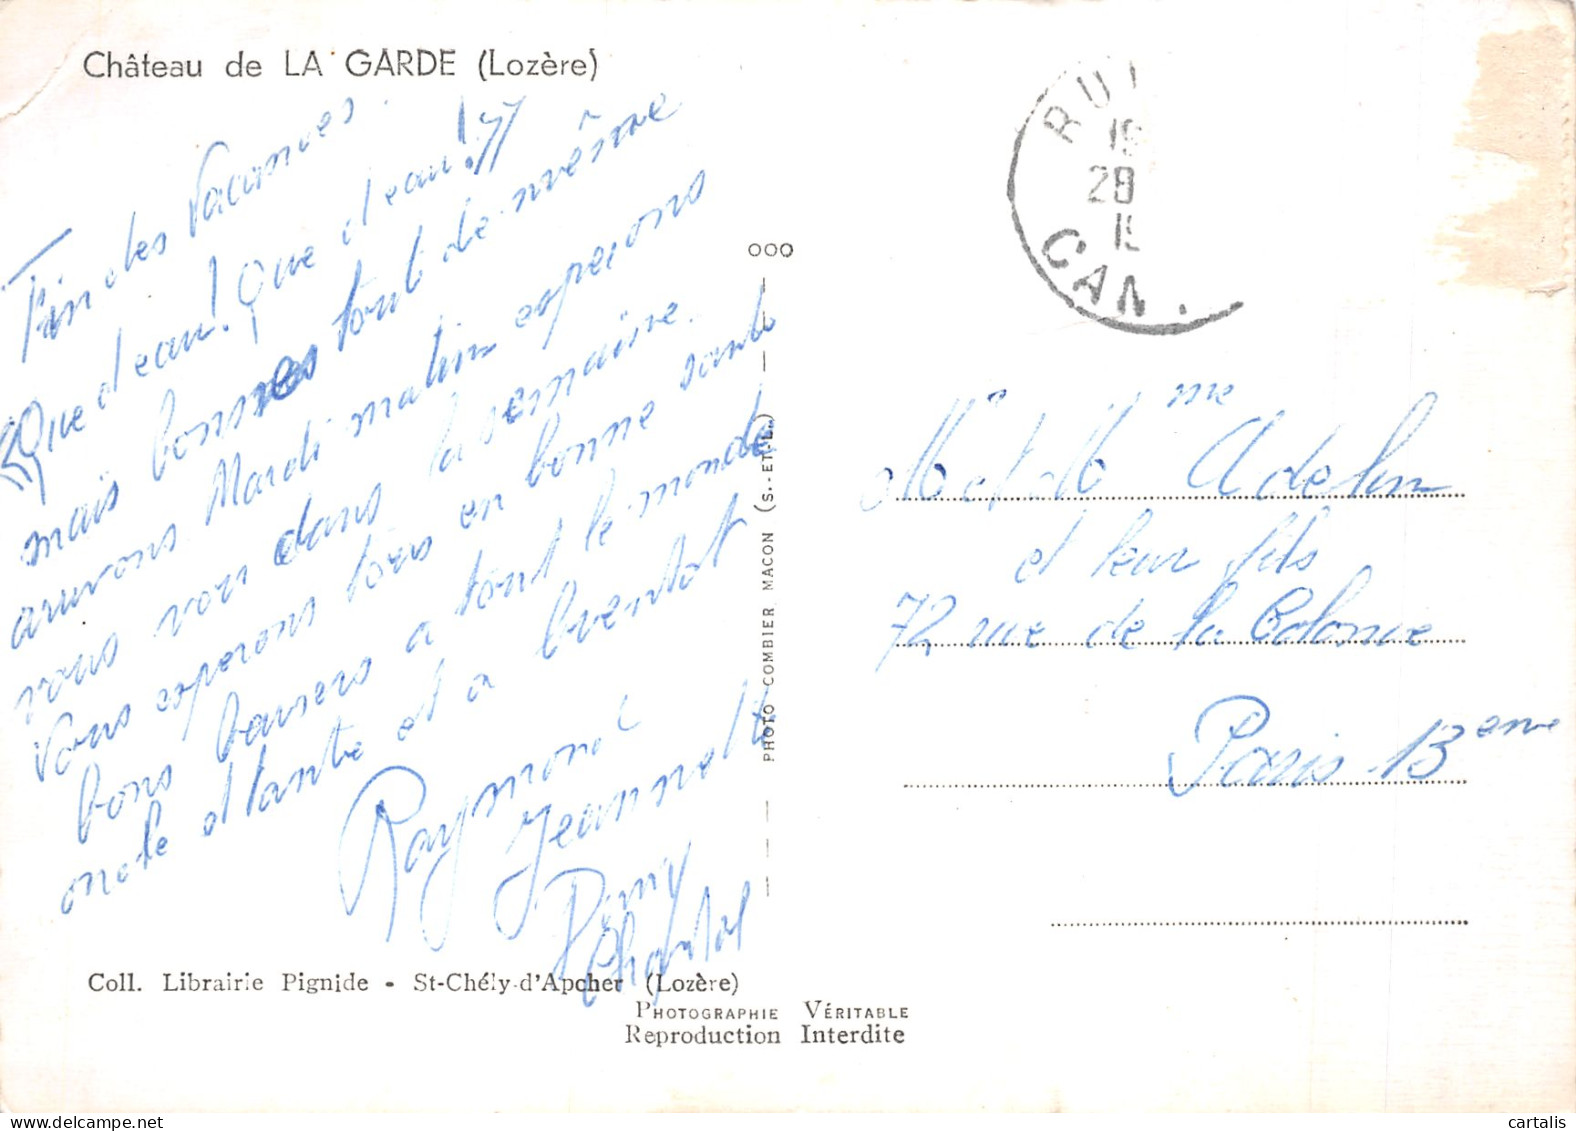 Château de LA GARDE (Lozère)
Fin des Vacances.
Que d'eau! Que d'eau!
mais bonnes tout de même
arrivons Mardi matin esperons
vous voir dans la semaine.
Vous esperons tous en bonne santé
bons baisers a tout le monde
oncle et tante et a
Raymond
Jeannette
Remy
Chantal
Coll. Librairie Pignide - St-Chély-d'Apcher (Lozère)
PHOTOGRAPHIE VÉRITABLE
Reproduction Interdite
PHOTO COMBIER MACON (S.-ET-L.)
28
CAN.
Mr et Mme
et leur fils
72 rue de la Colonie
Paris 13eme
cartalis